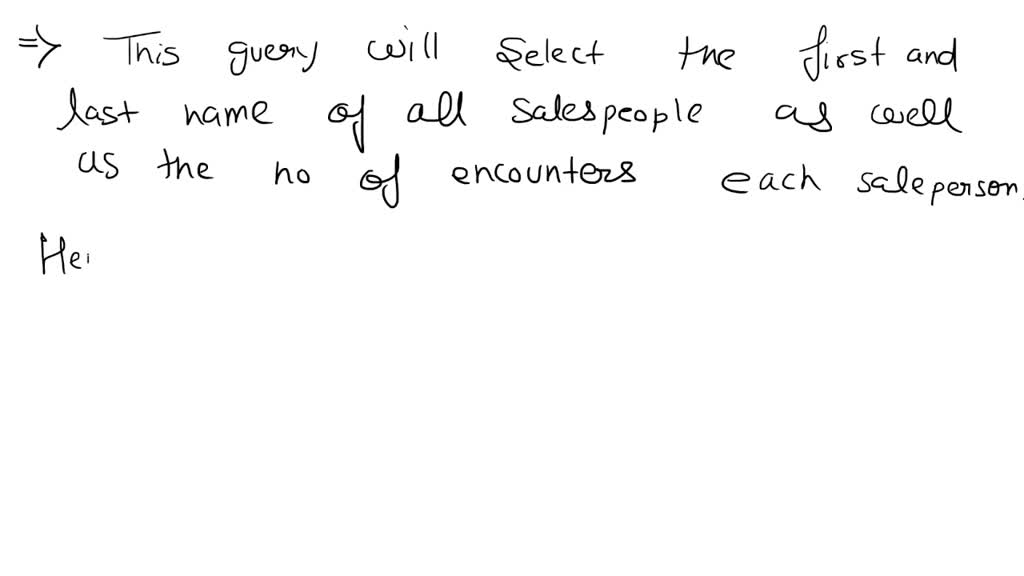 => This query will select the first and
last name of all salespeople as well
as the no of encounters each saleperson.
Hei